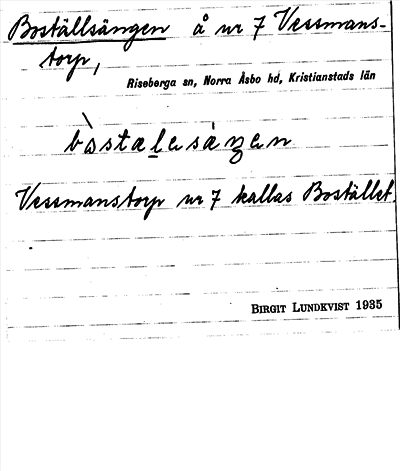 Boställsängen å nr 7 Vessmans-
torp,
Riseberga sn, Norra Åsbo hd, Kristianstads län
Vessmanstorp nr 7 kallas Bostället.
BIRGIT LUNDKVIST 1935